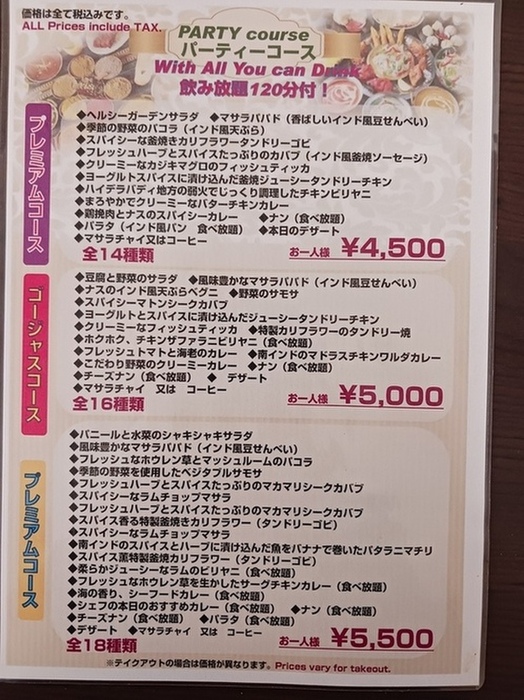 価格は全て税込みです。
ALL Prices include TAX.
PARTY course
パーティーコース
With All You can Drink
飲み放題120分付！
プレミアムコース
◆ヘルシーガーデンサラダ ◆マサラパパド（香ばしいインド風豆せんべい）
◆季節の野菜のパコラ（インド風天ぷら）
◆スパイシーな釜焼きカリフラワータンドリーゴビ
◆フレッシュハーブとスパイスたっぷりのカバブ（インド風釜焼ソーセージ）
◆クリーミーなカジキマグロのフィッシュティッカ
◆ヨーグルトスパイスに漬け込んだ釜焼ジューシータンドリーチキン
◆ハイデラバディ地方の弱火でじっくり調理したチキンビリヤニ
◆まろやかでクリーミーなバターチキンカレー
◆鶏挽肉とナスのスパイシーカレー ◆ナン（食べ放題）
◆パラタ（インド風パン 食べ放題） ◆本日のデザート
◆マサラチャイ又はコーヒー
全14種類 お一人様 ¥4,500
ゴージャスコース
◆豆腐と野菜のサラダ ◆風味豊かなマサラパパド（インド風豆せんべい）
◆ナスのインド風天ぷらベグニ ◆野菜のサモサ
◆スパイシーマトンシークカバブ
◆ヨーグルトとスパイスに漬け込んだジューシータンドリーチキン
◆クリーミーなフィッシュティッカ ◆特製カリフラワーのタンドリー焼
◆ホクホク、チキンザファラニビリヤニ（食べ放題）
◆フレッシュトマトと海老のカレー ◆南インドのマドラスチキンワルダカレー
◆こだわり野菜のクリーミーカレー ◆ナン（食べ放題）
◆チーズナン（食べ放題） ◆ デザート
◆マサラチャイ 又は コーヒー
全16種類 お一人様 ¥5,000
プレミアムコース
◆バニールと水菜のシャキシャキサラダ
◆風味豊かなマサラパパド（インド風豆せんべい）
◆フレッシュなホウレン草とマッシュルームのパコラ
◆季節の野菜を使用したベジタブルサモサ
◆フレッシュハーブとスパイスたっぷりのマカマリシークカバブ
◆スパイシーなラムチョップマサラ
◆フレッシュハーブとスパイスたっぷりのマカマリシークカバブ
◆スパイス香る特製釜焼きカリフラワー（タンドリーゴビ）
◆スパイシーなラムチョップマサラ
◆南インドのスパイスとハーブに漬け込んだ魚をバナナで巻いたパタラニマチリ
◆スパイス薫特製釜焼カリフラワー（タンドリーゴビ）
◆柔らかジューシーなラムのビリヤニ（食べ放題）
◆フレッシュなホウレン草を生かしたサーグチキンカレー（食べ放題）
◆海の香り、シーフードカレー（食べ放題）
◆シェフの本日のおすすめカレー（食べ放題） ◆ナン（食べ放題）
◆チーズナン（食べ放題） ◆パラタ（食べ放題）
◆デザート ◆マサラチャイ 又は コーヒー
全18種類 お一人様 ¥5,500
※テイクアウトの場合は価格が異なります。Prices vary for takeout.